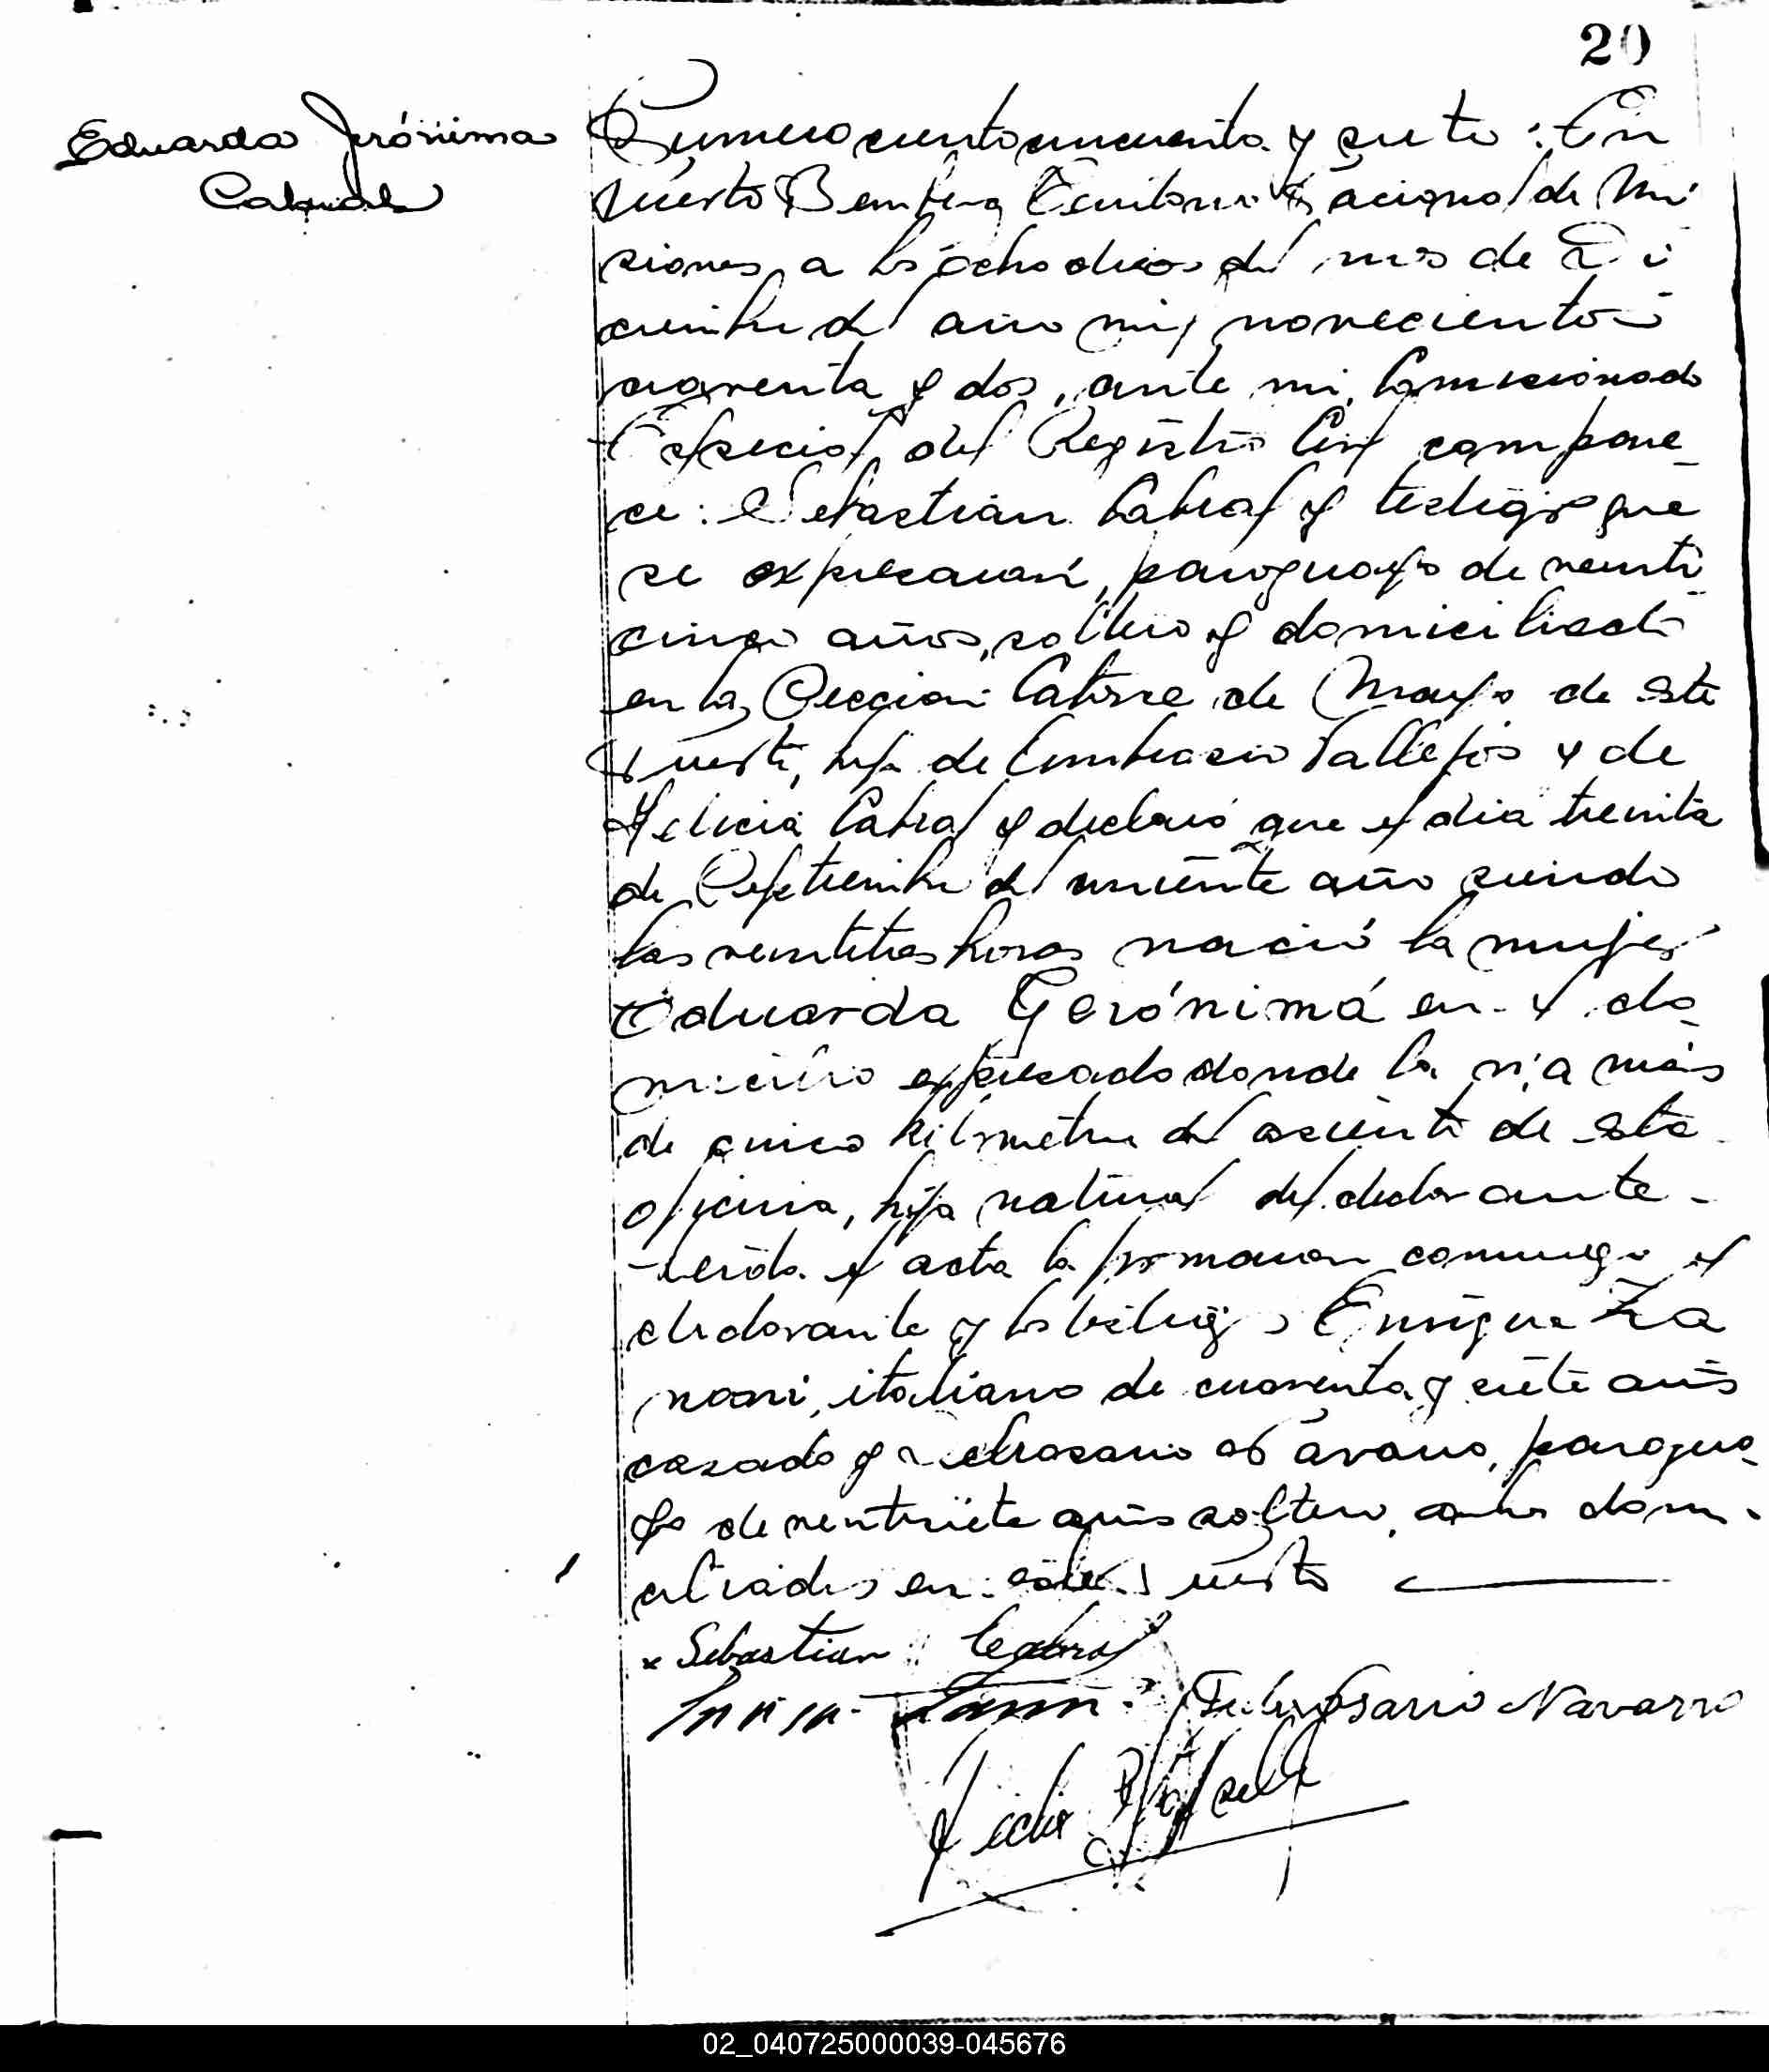 20
Eduarda Jerónima
Cabral
Numero ciento cincuenta y siete: En
Puerto Bemberg Territorio Nacional de Mi
siones, a los ocho dias del mes de Di
ciembre del año mil novecientos
cuarenta y dos, ante mi, Comisionado
Especial del Registro Civil compare_
ce: Sebastián Cabral y testigos que
se expresarán, paraguayo de veinti
cinco años, soltero y domiciliado
en la Seccion Catorce de Mayo de este
Puerto, hijo de Vallejos y de
Felicia Cabral y declaró que el dia treinta
de Septiembre del corriente año siendo
las veintitres horas nació la mujer
Eduarda Gerónima en el do_
micilio expresado donde la via más
de cinco kilometros del asiento de esta
oficina, hija natural del declarante -
- Leida el acta la firmaron conmigo el
declarante y los testigos Enrique Za
noni, italiano de cuarenta y siete años
casado y Navarro, paragua_
yo de veintisiete años soltero, ambos domi-
ciliados en este Puerto
x Sebastian Cabral
Navarro